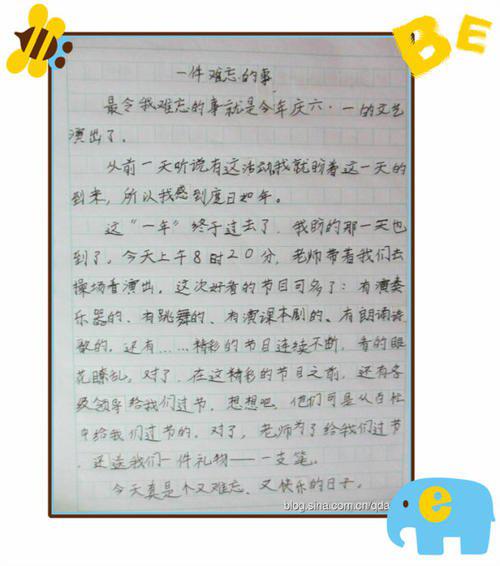 BE
一件难忘的事
最令我难忘的事就是今年庆六·一的文艺
演出了.
从前一天听说有这活动我就盼着这一天的
到来，所以我感到度日如年。
这“一年”终于过去了，我盼的那一天也
到了，今天上午8时20分，老师带着我们去
操场看演出，这次好看的节目可多了：有演奏
乐器的、有跳舞的、有演课本剧的、有朗诵诗
歌的，还有……精彩的节目连续不断，看的眼
花瞭乱，对了，在这精彩的节目之前，还有各
级领导给我们过节，想想吧，他们可是从百忙
中给我们过节的，对了，老师为了给我们过节
，还送我们一件礼物——一支笔。
今天真是个又难忘、又快乐的日子。
blog.sina.com.cn/qda
e